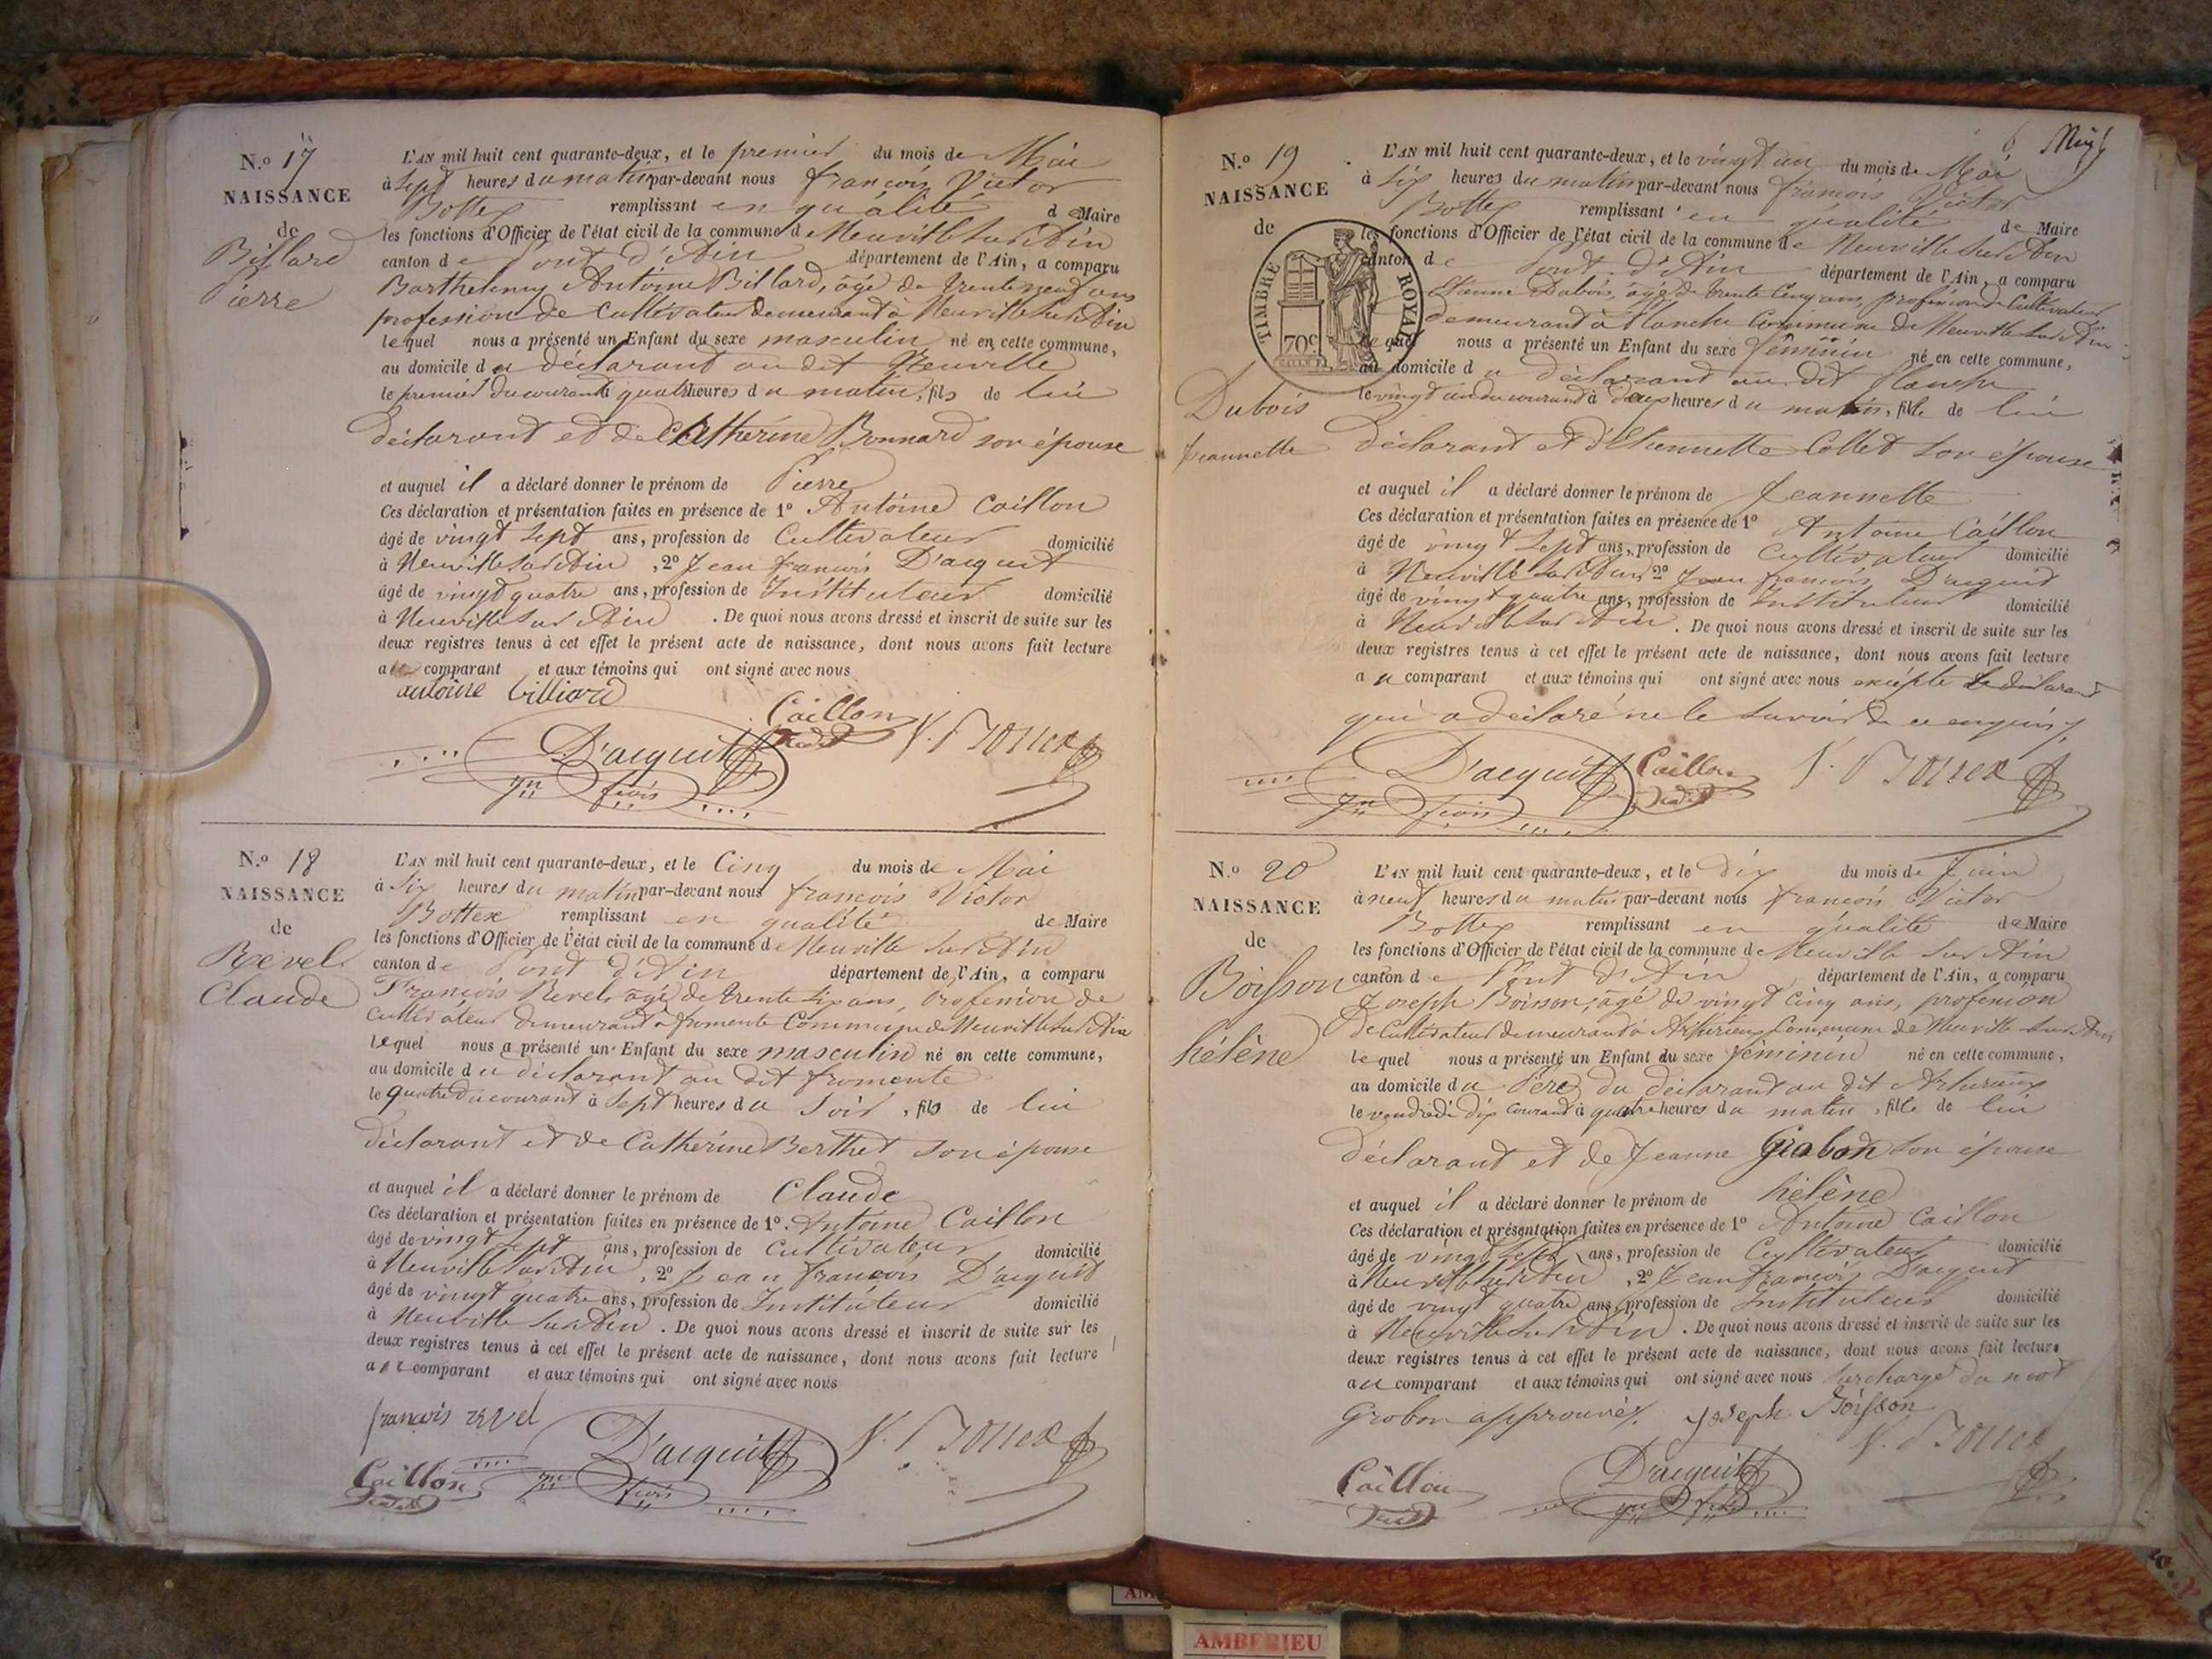 N.º 17
NAISSANCE
de
Billard
Pierre
L'AN mil huit cent quarante-deux, et le premier du mois de Mai
à Sept heures du matin par-devant nous françois Victor
Bottex remplissant en qualité de Maire
les fonctions d'Officier de l'état civil de la commune de Neuville sur Ain
canton de Pont d'Ain département de l'Ain, a comparu
Barthelemy Antoine Billard, âgé de trente neuf ans
profession de Cultivateur demeurant à Neuville sur Ain
lequel nous a présenté un Enfant du sexe masculin né en cette commune,
au domicile du déclarant au dit Neuville
le premier du courant à quatre heures du matin, fils de lui
déclarant et de Catherine Bonnard son épouse
et auquel il a déclaré donner le prénom de Pierre
Ces déclaration et présentation faites en présence de 1º Antoine Caillon
âgé de vingt sept ans, profession de Cultivateur domicilié
à Neuville sur Ain, 2º Jean françois D'acquit
âgé de vingt quatre ans, profession de Instituteur domicilié
à Neuville sur Ain. De quoi nous avons dressé et inscrit de suite sur les
deux registres tenus à cet effet le présent acte de naissance, dont nous avons fait lecture
au comparant et aux témoins qui ont signé avec nous
antoine billiard
Caillon
D'acquit V. Bottex
jn fcois
N.º 18
NAISSANCE
de
Revel
Claude
L'AN mil huit cent quarante-deux, et le Cinq du mois de Mai
à Six heures du matin par-devant nous françois Victor
Bottex remplissant en qualité de Maire
les fonctions d'Officier de l'état civil de la commune de Neuville sur Ain
canton de Pont d'Ain département de l'Ain, a comparu
François Revel âgé de trente six ans, Profession de
cultivateur demeurant à fromente Commune de Neuville sur Ain
lequel nous a présenté un Enfant du sexe masculin né en cette commune,
au domicile du déclarant au dit fromente
le quatre du courant à Sept heures du Soir, fils de lui
déclarant et de Catherine Berthet son épouse
et auquel il a déclaré donner le prénom de Claude
Ces déclaration et présentation faites en présence de 1º Antoine Caillon
âgé de vingt sept ans, profession de Cultivateur domicilié
à Neuville sur Ain, 2º Jean françois D'acquit
âgé de vingt quatre ans, profession de Instituteur domicilié
à Neuville sur Ain. De quoi nous avons dressé et inscrit de suite sur les
deux registres tenus à cet effet le présent acte de naissance, dont nous avons fait lecture
au comparant et aux témoins qui ont signé avec nous
françois revel
D'acquit V. Bottex
Caillon jn fcois
6
N.º 19
NAISSANCE
de
TIMBRE ROYAL
70c
Dubois
Jeannette
L'AN mil huit cent quarante-deux, et le vingt un du mois de Mai
à Six heures du matin par-devant nous françois Victor
Bottex remplissant en qualité de Maire
les fonctions d'Officier de l'état civil de la commune de Neuville sur Ain
canton de Pont d'Ain département de l'Ain, a comparu
Etienne Dubois, âgé de trente Cinq ans, profession de Cultivateur
demeurant à Planche Commune de Neuville sur Ain
lequel nous a présenté un Enfant du sexe féminin né en cette commune,
au domicile du déclarant au dit Planche
le vingt un du courant à deux heures du matin, fille de lui
déclarant et d'Etiennette Collet son épouse
et auquel il a déclaré donner le prénom de Jeannette
Ces déclaration et présentation faites en présence de 1º Antoine Caillon
âgé de vingt Sept ans, profession de Cultivateur domicilié
à Neuville sur Ain 2º Jean françois D'acquit
âgé de vingt quatre ans, profession de Instituteur domicilié
à Neuville sur Ain. De quoi nous avons dressé et inscrit de suite sur les
deux registres tenus à cet effet le présent acte de naissance, dont nous avons fait lecture
au comparant et aux témoins qui ont signé avec nous excepté le déclarant
qui a déclaré ne le savoir de ce enquis
D'acquit Caillon V. Bottex
jn fcois
N.º 20
NAISSANCE
de
Boisson
hélène
L'AN mil huit cent quarante-deux, et le dix du mois de Juin
à neuf heures du matin par-devant nous françois Victor
Bottex remplissant en qualité de Maire
les fonctions d'Officier de l'état civil de la commune de Neuville sur Ain
canton de Pont d'Ain département de l'Ain, a comparu
Joseph Boisson, âgé de vingt cinq ans, profession
de Cultivateur demeurant à Commune de Neuville sur Ain
lequel nous a présenté un Enfant du sexe féminin né en cette commune,
au domicile du Père du déclarant au dit
le vendredi dix courant à quatre heures du matin, fille de lui
déclarant et de Jeanne Grobon son épouse
et auquel il a déclaré donner le prénom de hélène
Ces déclaration et présentation faites en présence de 1º Antoine Caillon
âgé de vingt sept ans, profession de Cultivateur domicilié
à Neuville sur Ain, 2º Jean françois D'acquit
âgé de vingt quatre ans, profession de Instituteur domicilié
à Neuville sur Ain. De quoi nous avons dressé et inscrit de suite sur les
deux registres tenus à cet effet le présent acte de naissance, dont nous avons fait lecture
au comparant et aux témoins qui ont signé avec nous surcharge du mot
Grobon approuvé. joseph Boisson
V. Bottex
Caillon D'acquit
jn fcois
AMBERIEU